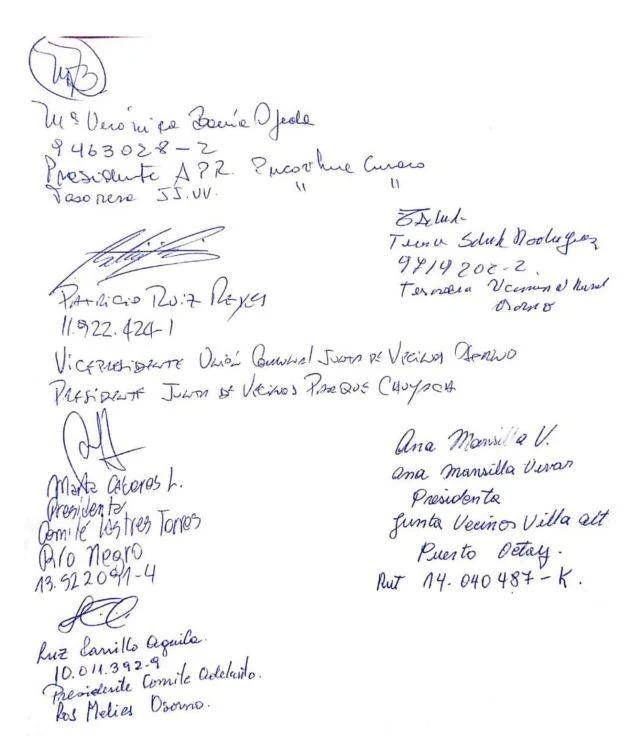 Mª Verónica Barría Ojeda
9463028-2
Presidente A P R. Curaco
Tesorera JJ.VV. " "
Patricio Ruiz Reyes
11.922.424-1
Vicepresidente Unión Comunal Junta de Vecinos Osorno
Presidente Junta de Vecinos Parque Chuyaca
Teresa Rodriguez
9719202-2.
Tesorera Rural
Osorno
Marta Cáceres L.
Presidenta
Comité las tres Torres
Río Negro
13.522091-4
Ana Mansilla V.
Ana Mansilla Vivar
Presidenta
Junta Vecinos Villa alt
Puerto Octay.
Rut 14.040487-K.
Luz Carrillo Aguila.
10.011.392-9
Presidente Comite Adelanto.
Osorno.